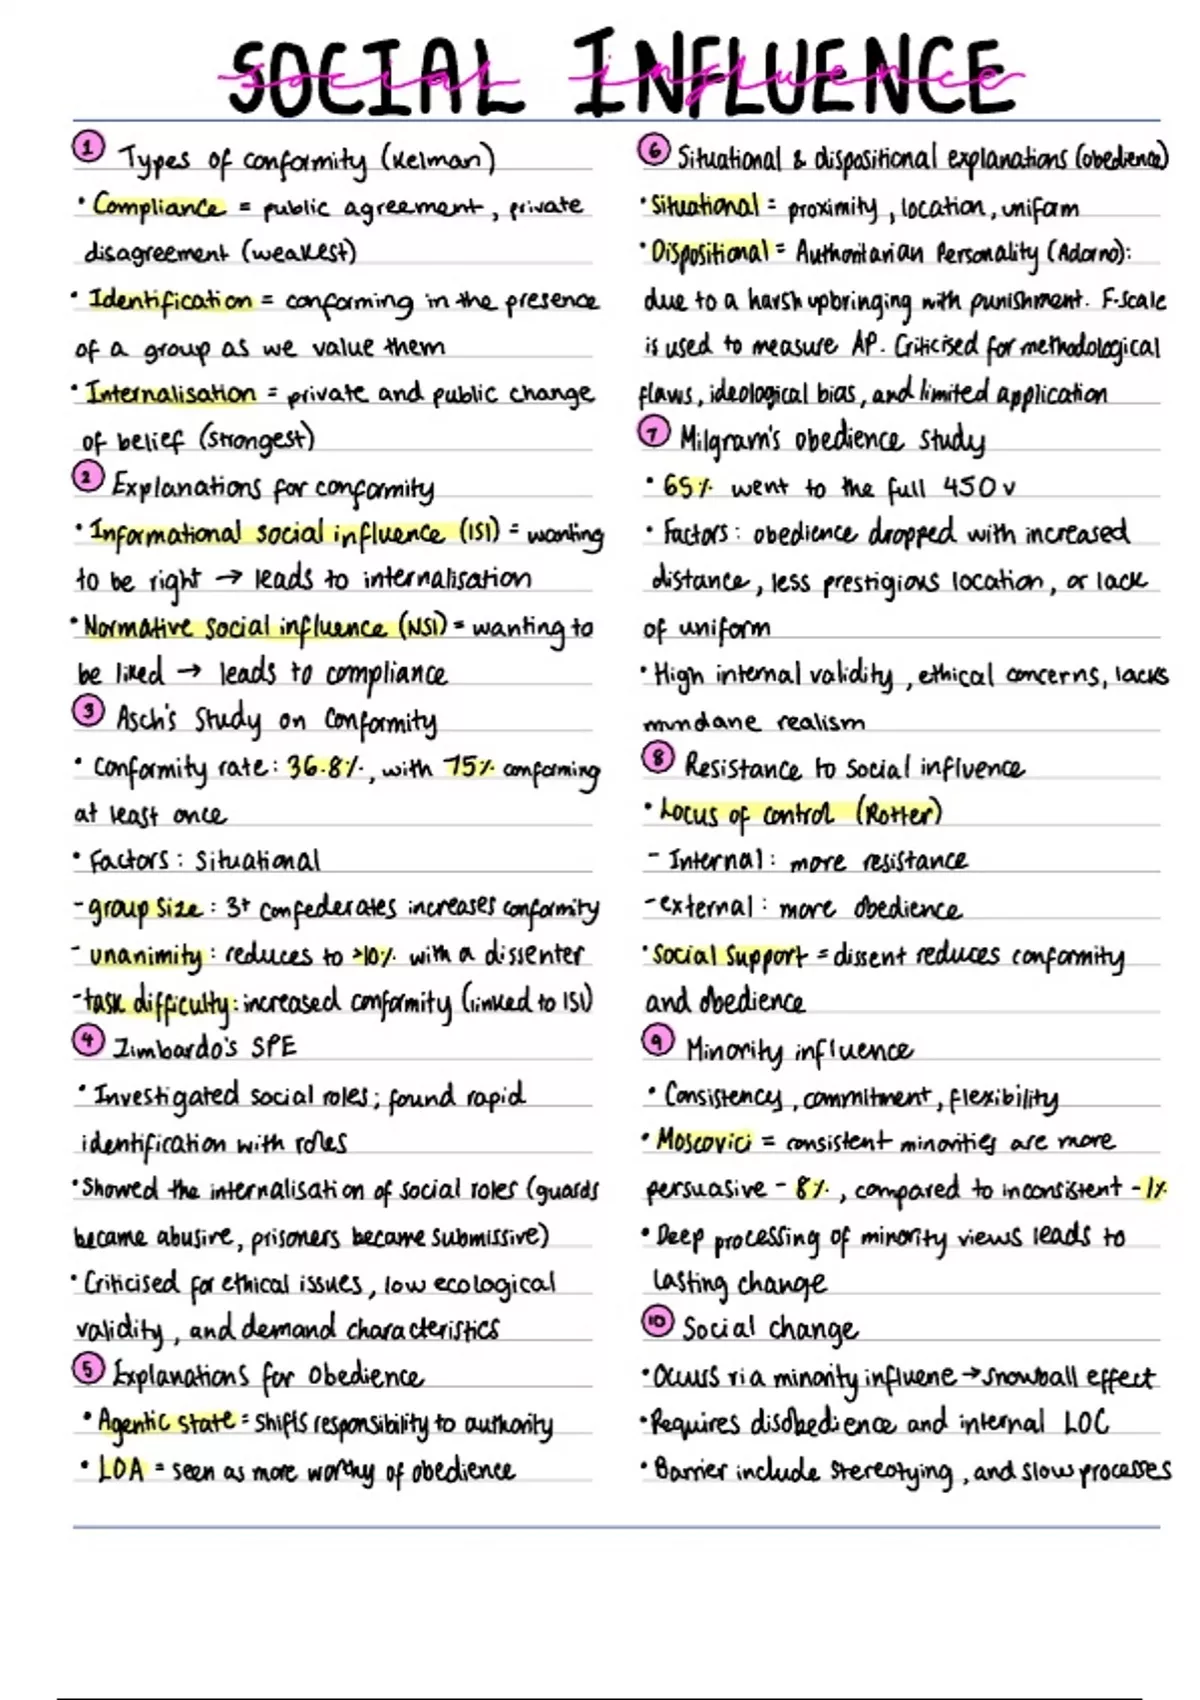 SOCIAL INFLUENCE
social influence
1 Types of conformity (Kelman)
• Compliance = public agreement, private
disagreement (weakest)
• Identification = conforming in the presence
of a group as we value them
• Internalisation = private and public change
of belief (strongest)
2 Explanations for conformity
• Informational social influence (ISI) = wanting
to be right → leads to internalisation
• Normative social influence (NSI) = wanting to
be liked → leads to compliance
3 Asch's Study on Conformity
• Conformity rate: 36.8%, with 75% conforming
at least once
• Factors: Situational
- group size: 3+ confederates increases conformity
- unanimity: reduces to >10% with a dissenter
- task difficulty: increased conformity (linked to ISI)
4 Zimbardo's SPE
• Investigated social roles; found rapid
identification with roles
• Showed the internalisation of social roles (guards
became abusive, prisoners became submissive)
• Criticised for ethical issues, low ecological
validity, and demand characteristics
5 Explanations for Obedience
• Agentic state = shifts responsibility to authority
• LOA = seen as more worthy of obedience
6 Situational & dispositional explanations (obedience)
• Situational = proximity, location, uniform
• Dispositional = Authoritarian Personality (Adorno):
due to a harsh upbringing with punishment. F-Scale
is used to measure AP. Criticised for methodological
flaws, ideological bias, and limited application
7 Milgram's obedience study
• 65% went to the full 450v
• Factors: obedience dropped with increased
distance, less prestigious location, or lack
of uniform
• High internal validity, ethical concerns, lacks
mundane realism
8 Resistance to social influence
• Locus of control (Rotter)
- Internal: more resistance
- external: more obedience
• Social Support = dissent reduces conformity
and obedience
9 Minority influence
• Consistency, commitment, flexibility
• Moscovici = consistent minorities are more
persuasive - 8%, compared to inconsistent - 1%
• Deep processing of minority views leads to
lasting change
10 Social change
• Occurs via minority influene → snowball effect
• Requires disobedience and internal LOC
• Barrier include stereotying, and slow processes